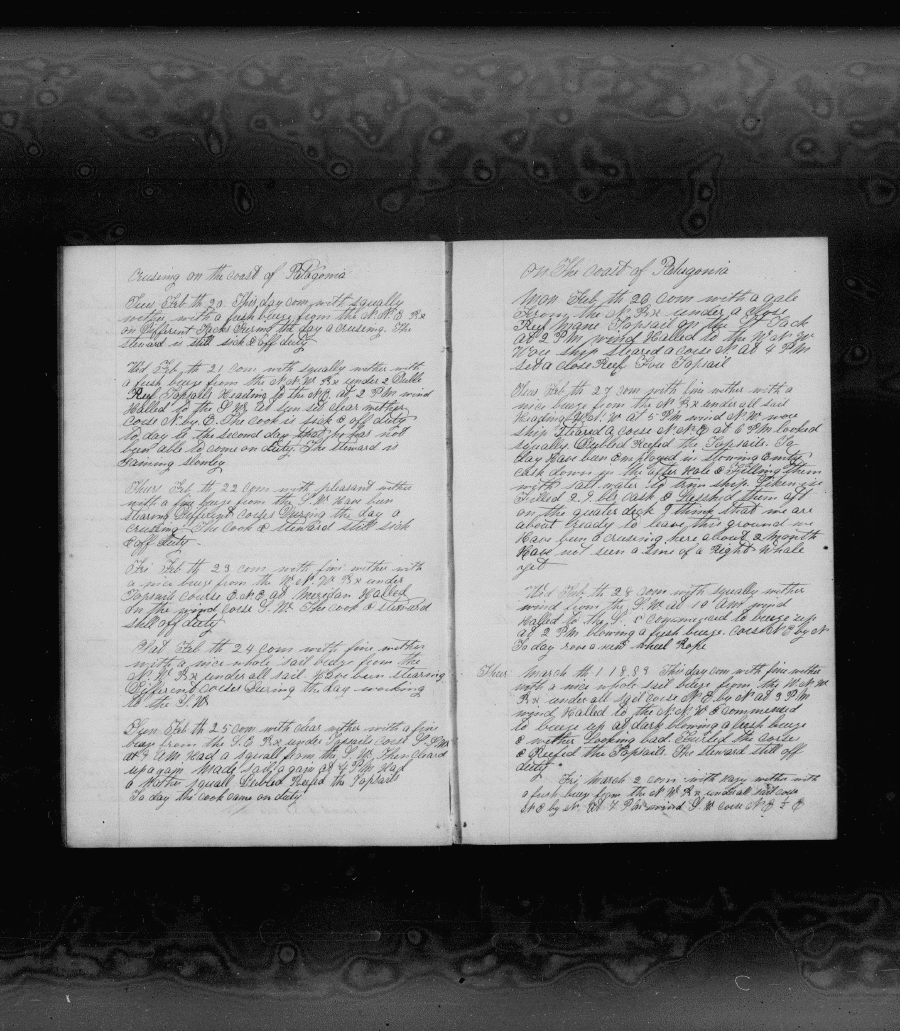 Cruseing on the coast of Patagonia
Tues Feb th 20 This day com with squally
wether with a fresh breeze from the N.N.E. Bx
on Different Tacks During the day a crusing. The
steward is still sick & off duty
Wed Feb th 21 com with squally wether with
a fresh breeze from the N.N.W. Bx under 2 Duble
Reef Topsails Heading to the N.E. at 2 P.M wind
Halled to the S W. at sun set clear wether
Corse N by E. The cook is sick & off duty
to day is the second day that he has not
been able to come on duty. The steward is
Gaining slowley
Thurs Feb th 22 com with pleasant wether
with a fine breeze from the S.W Have been
stearing Different corses During the day a
crusing The cook & steward still sick
& off duty
Fri Feb th 23 com with fine wether with
a nice breeze from the W.N.W. Bx under
Topsails course E.N.E. at Meridian Halled
in the wind corse S.W. The cook & steward
still off duty
Sat Feb th 24 com with fine wether
with a nice whole sail breeze from the
N.W. Bx under all sail. Have been stearing
Different corses During the day working
to the S.W
Sun Feb th 25 com with clear wether with a fine
breeze from the S.E. Bx under Topsails corse
at 9 A.M Had a squall from the S.W. Then cleard
up again made sail again at 4 P.M Had
a squall Reefd the Topsail
To day the cook came on duty
on The coast of Patagonia
Mon Feb th 26 com with a gale
from the N Bx under a close
Reef Mane Topsail on the Tack
at 2 P.M wind Halled to the W.N.W
Wore ship steared a corse N. at 4 P.M
set a close Reef Fore Topsail
Tues Feb th 27 com with fine wether with a
nice breeze from the N Bx under all sail
Heading W at 5 P.M wind N.W wore
ship steared a corse N.N.E at 6 P.M looked
squally Dubled Reefed the Topsails. To
day Have been Employed in stowing Emty
cask down in the after Hole & Filling Them
with salt water to trim ship. Taken
on the quater dick I think that we are
about ready to leave this ground we
Have been a crusing here about 2 month
Have not seen a sine of a Right whale
yet
Wed Feb th 28 com with squally wether
wind from the S.W. at 10 A.M wind
Halled to the S. & commenced to breeze up
at 2 P.M blowing a fresh breeze. Corse N.E by N
To day rove a new wheel Rope
Thur March th 1 1888 This day com with fine wether
with a nice whole sail breeze from the W.N.W
Bx under all sail corse N.E. by N at 3 P.M
wind Halled to the N.N.W & commenced
to breeze up at dark blowing a fresh breeze
& wether looking bad.
& Reefed the Topsails The steward still off
duty
Fri March 2 com with hazy wether with
a fresh breeze from the N W Bx under all sail corse
N.E by N. at 4 P.M wind S.W corse N.E